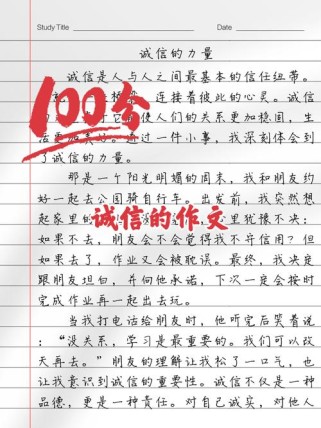 Study Title
Date
诚信的力量
诚信是人与人之间最基本的信任纽带。
连接着彼此的心灵。诚信
使人们的关系更加稳固,生
活更加美好。通过一件小事,我深刻体会到
了诚信的力量。
100分
那是一个阳光明媚的周末,我和朋友约
好一起去公园骑自行车。出发前,我突然想
起家里的
里犹豫不决:
诚信的作文
如果不去,朋友会不会觉得我不守信用?但
如果去了,作业又会被耽误。最终,我决定
跟朋友坦白,并向他承诺,下次一定会按时
完成作业再一起出去玩。
当我打电话给朋友时,他听完后笑着说
:“没关系,学习是最重要的。我们可以改
天再去。”朋友的理解让我松了一口气,也
让我意识到诚信的重要性。诚信不仅是一种
品德,更是一种责任。对自己诚实,对他人